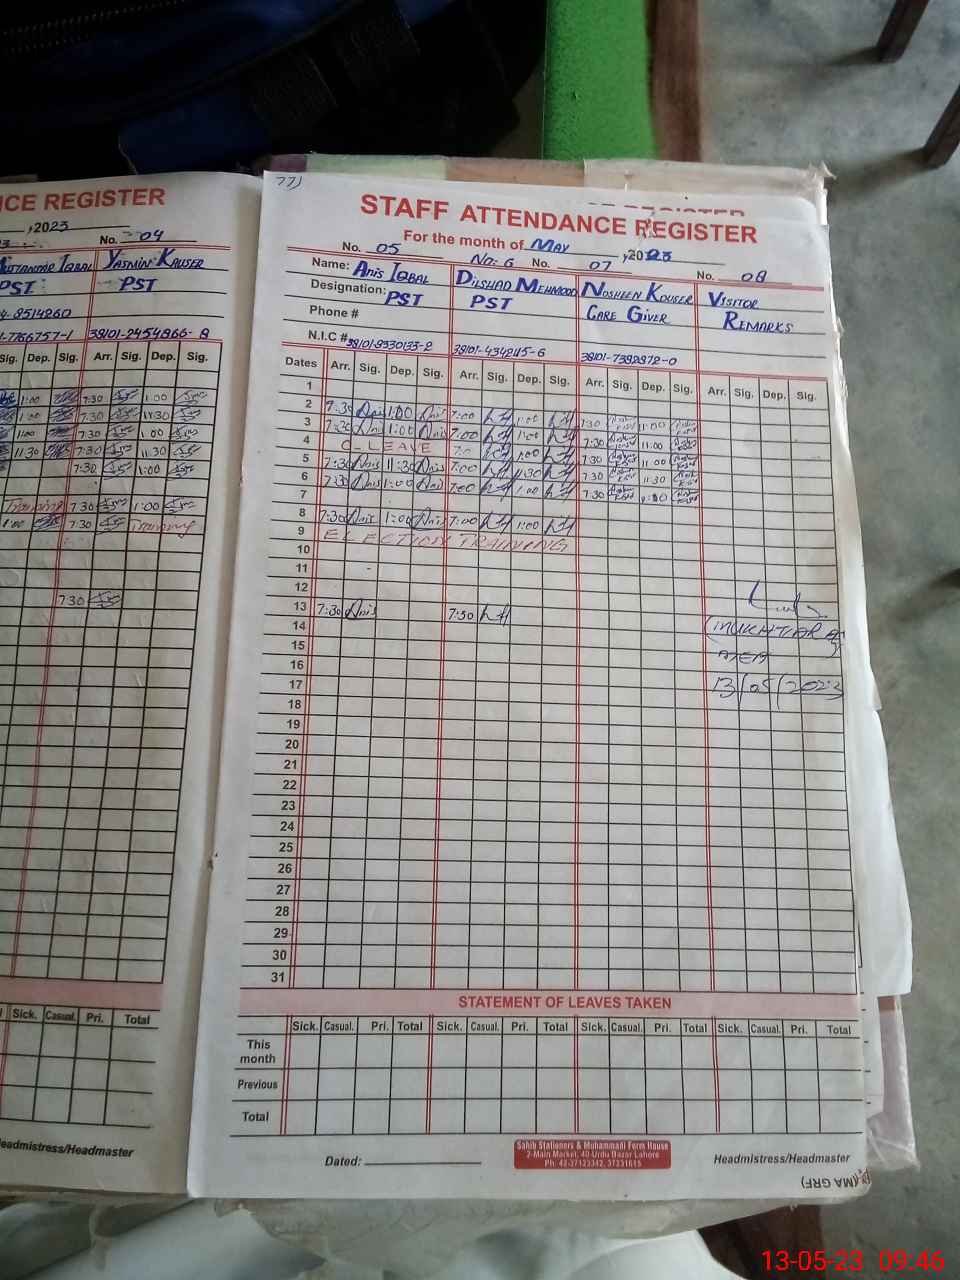 77)
CE REGISTER
, 2023
No. 04
Iqbal
Yasmin Kauser
PST
PST
8514260
7766757-1
38101-2454866-8
Sig. Dep. Sig. Arr. Sig. Dep. Sig.
1:00 7:30 1:00
1:00 7:30 11:30
1:00 7:30 1:00
11:30 7:30 11:30
7:30 1:00
Training 7:30 1:00
1:00 7:30 Training
7:30
Sick. Casual. Pri. Total
eadmistress/Headmaster
STAFF ATTENDANCE REGISTER
For the month of May , 2023
No. 05 No: 6 No. 07 No. 08
Name: Anis Iqbal Dilshad Mehmood Nosheen Kouser Visitor
Designation: PST PST Care Giver Remarks
Phone #
N.I.C # 38101-8930133-2 38101-434245-6 38101-7392872-0
Dates Arr. Sig. Dep. Sig. Arr. Sig. Dep. Sig. Arr. Sig. Dep. Sig. Arr. Sig. Dep. Sig.
1
2 7:30 Anis 1:00 Anis 7:00 1:00
3 7:30 Anis 1:00 Anis 7:00 1:00 7:30 11:00
4 C - LEAVE 7:00 1:00 7:30 11:00
5 7:30 Anis 11:30 Anis 7:00 11:30 7:30 11:00
6 7:30 Anis 1:00 Anis 7:00 1:00 7:30 11:30
7 7:30
8 7:30 Anis 1:00 Anis 7:00 1:00
9 ELECTION TRAINING
10
11
12
13 7:30 Anis 7:30
14
15
16
17
18
19
20
21
22
23
24
25
26
27
28
29
30
31
(MUKHTIAR
13/05/2023
STATEMENT OF LEAVES TAKEN
Sick. Casual. Pri. Total Sick. Casual. Pri. Total Sick. Casual. Pri. Total Sick. Casual. Pri. Total
This month
Previous
Total
Dated:
Sahib Stationers & Muhammadi Form House
2-Main Market, 40-Urdu Bazar Lahore
Ph: 42-37123342, 37231615
Headmistress/Headmaster
(MA GRF)
13-05-23 09:46